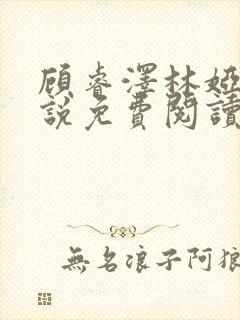 顧睿澤林婭
說免費閱讀
無名浪子阿狼